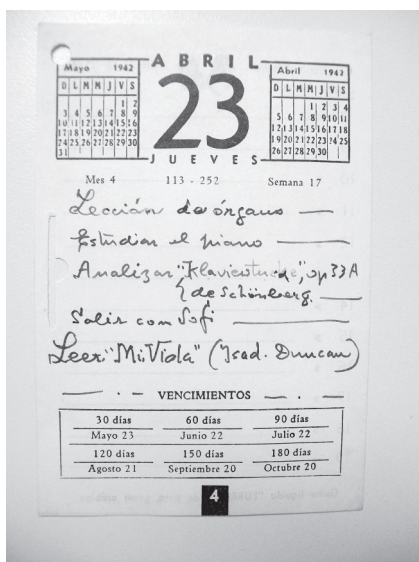 ABRIL
Mayo 1942
D L M M J V S
1 2
3 4 5 6 7 8 9
10 11 12 13 14 15 16
17 18 19 20 21 22 23
24 25 26 27 28 29 30
31
23
Abril 1942
D L M M J V S
1 2 3 4
5 6 7 8 9 10 11
12 13 14 15 16 17 18
19 20 21 22 23 24 25
26 27 28 29 30
JUEVES
Mes 4 113 - 252 Semana 17
Lección de órgano —
Estudiar el piano —
Analizar "Klavierstucke", op 33A
de Schönberg —
Salir con Sofi —
Leer "Mi Vida" (Isad. Duncan)
— · — VENCIMIENTOS — · —
30 días 60 días 90 días
Mayo 23 Junio 22 Julio 22
120 días 150 días 180 días
Agosto 21 Septiembre 20 Octubre 20
4